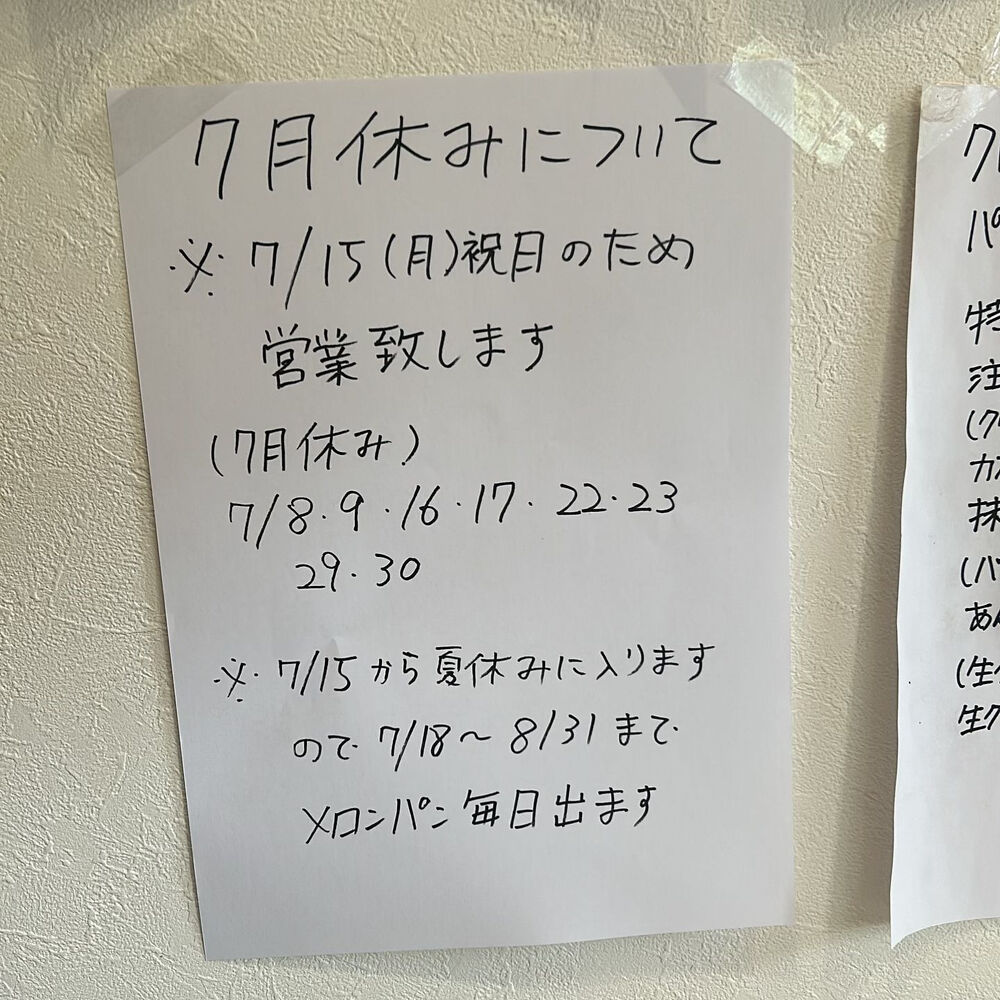 7月休みについて
※ 7/15(月)祝日のため
営業致します
(7月休み)
7/8・9・16・17・22・23
29・30
※ 7/15から夏休みに入ります
ので 7/18〜8/31まで
メロンパン毎日出ます
7
パ
特
注
(ク
カ
抹
(パ
あん
(生
生ク